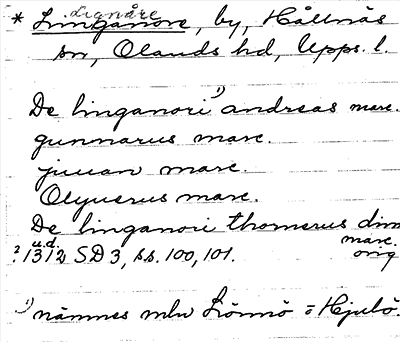 Lignåre
* Linganore, by, Hållnäs
sn, Olands hd, Upps. l.
De linganori ¹) andreas marc.
gunnarus marc.
juuan marc.
Olyuerus marc.
De linganori thomerus dim
marc.
? u.d. 1312 SD 3, ss. 100, 101. orig
¹) nämnes mln Lönnö o Hjulö.